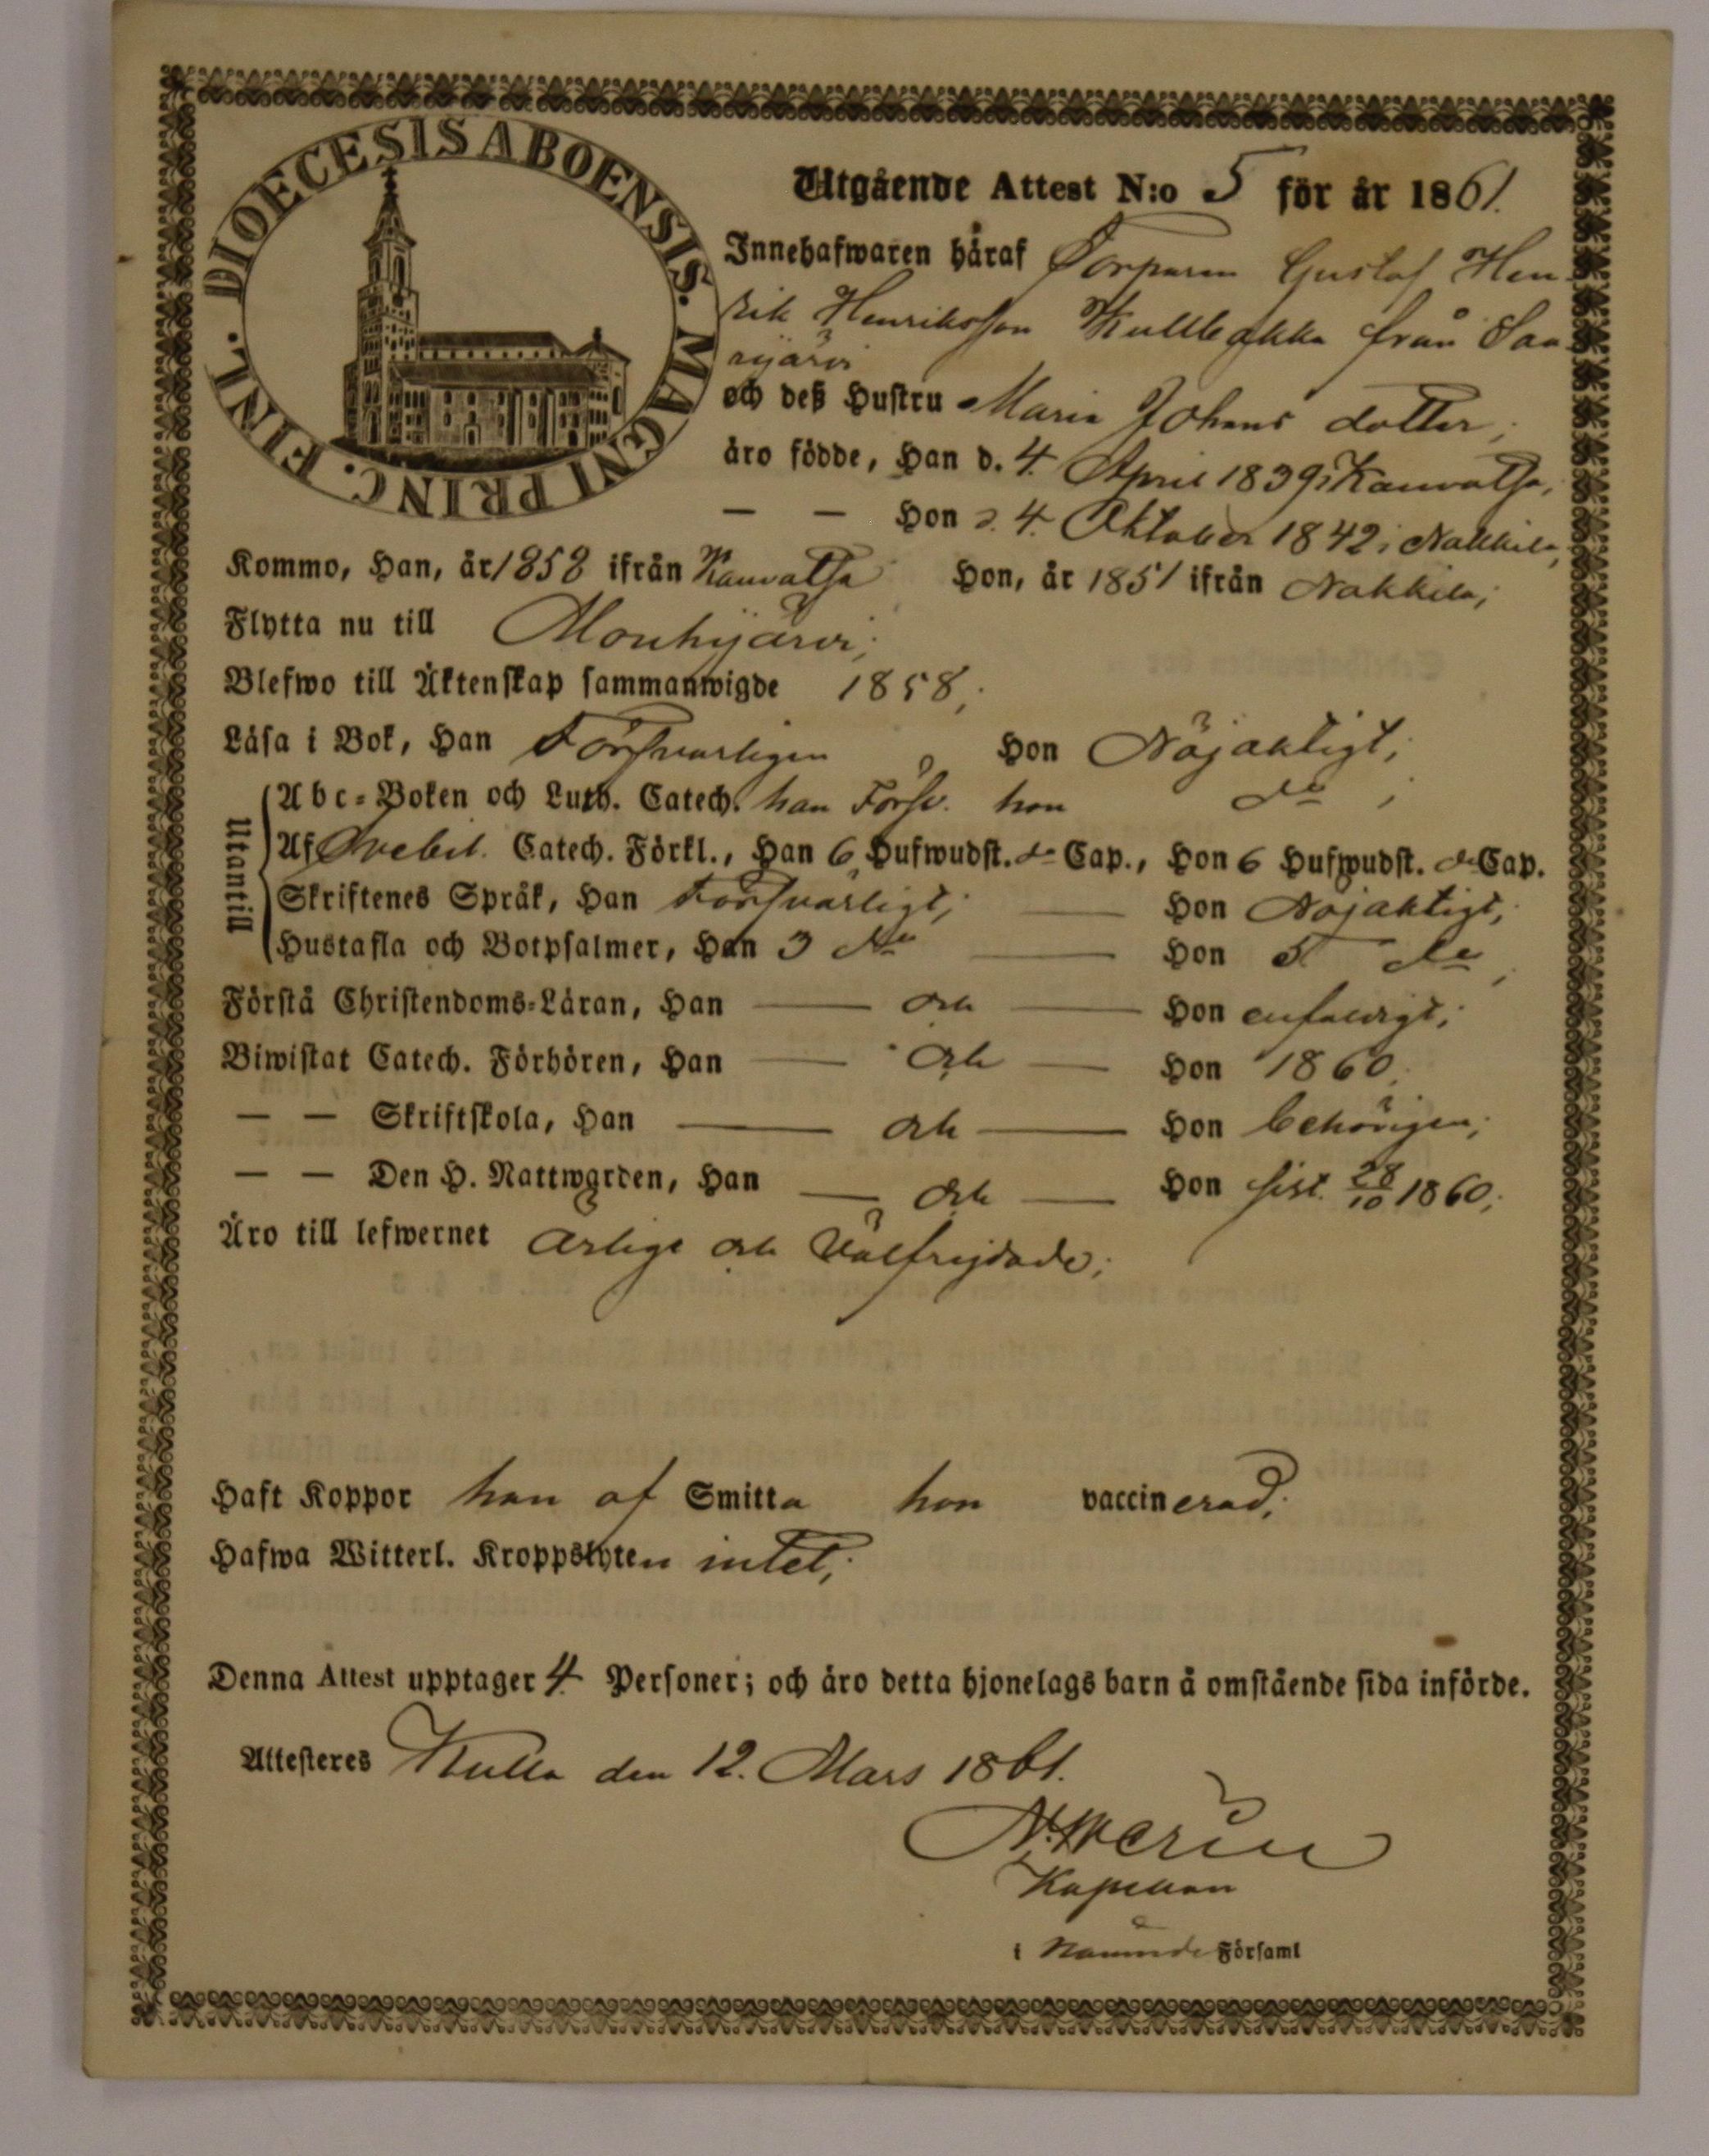 DIOECESIS ABOENSIS. MAGNI PRINC. FINL.
Utgående Attest N:o 5 för år 1861.
Innehafwaren håraf Torparen Gustaf Hen-
rik Henriksson Kullbakka från Saa-
rijärvi
och deß Hustru Maria Johans dotter;
äro födde, Han d. 4. April 1839 i Kauvatsa,
— — Hon d. 4. Oktober 1842 i Nakkila,
Kommo, Han, år 1858 ifrån Kauvatsa Hon, år 1851 ifrån Nakkila;
Flytta nu till Mouhijärvi;
Blefwo till Äktenskap sammanwigde 1858;
Läsa i Bok, Han Försvarligen Hon Nöjaktigt;
Utantill
Abc-Boken och Luth. Catech. han Försv. hon do ;
Af Svebil. Catech. Förkl., Han 6 Hufwudst. do Cap., Hon 6 Hufwudst. do Cap.
Skriftenes Språk, Han Försvarligt; — Hon Nöjaktigt;
Hustafla och Botpsalmer, Han 3 do — Hon 5 do ;
Förstå Christendoms-Läran, Han — och — Hon enfaldigt;
Biwistat Catech. Förhören, Han — och — Hon 1860;
— — Skriftskola, Han — och — Hon behörigen;
— — Den H. Nattwarden, Han — och — Hon sist 28/10 1860;
Äro till lefwernet ärlige och Välfrejdade;
Haft Koppor han af Smitta hon vaccinerad;
Hafwa Witterl. Kroppslyten intet;
Denna Attest upptager 4 Personer; och äro detta hjonelags barn å omstående sida införde.
Attesteres Kulla den 12. Mars 1861.
Kapellan
i Församl